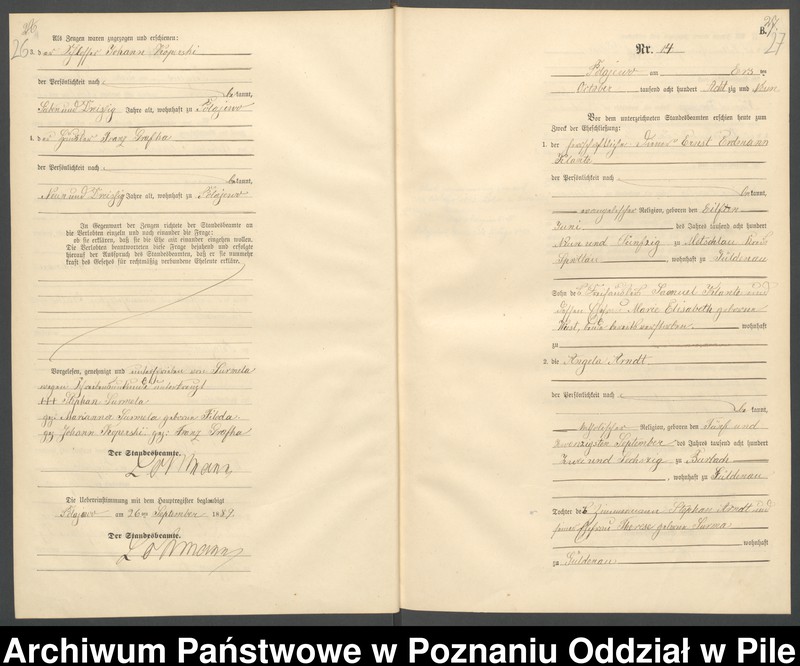 26
26
Als Zeugen waren zugezogen und erschienen:
3. der Schlosser Johann
der Persönlichkeit nach
bekannt,
Sieben und Dreißig Jahre alt, wohnhaft zu Polajewo
4. der Häusler Franz
der Persönlichkeit nach
bekannt,
Neun und Dreißig Jahre alt, wohnhaft zu Polajewo
In Gegenwart der Zeugen richtete der Standesbeamte an
die Verlobten einzeln und nach einander die Frage:
ob sie erklären, daß sie die Ehe mit einander eingehen wollen.
Die Verlobten beantworteten diese Frage bejahend und erfolgte
hierauf der Ausspruch des Standesbeamten, daß er sie nunmehr
kraft des Gesetzes für rechtmäßig verbundene Eheleute erkläre.
Vorgelesen, genehmigt und unterschrieben von Surmela
wegen Schreibensunkunde unterkreuzt
+++ Stephan Surmela
gez. Marianna Surmela geborne
gez. Johann gez. Franz
Der Standesbeamte.
Lohmann
Die Uebereinstimmung mit dem Hauptregister beglaubigt
Polajewo am 26ten September 1889.
Der Standesbeamte.
Lohmann
27
27
B.
Nr. 14
Polajewo am Ers ten
October tausend acht hundert Acht zig und Neun
Vor dem unterzeichneten Standesbeamten erschien heute zum
Zweck der Eheschließung:
1. der herrschaftliche Diener Ernst Erdmann
Klante
der Persönlichkeit nach
bekannt,
evangelischer Religion, geboren den Eilften
Juni des Jahres tausend acht hundert
Neun und Fünfzig zu Metschlau Kreis
Sprottau, wohnhaft zu Güldenau
Sohn des Freihäuslers Samuel Klante und
dessen Ehefrau Marie Elisabeth geborene
beide bereits verstorben wohnhaft
zu
2. die Angela Arndt
der Persönlichkeit nach
bekannt,
katholischer Religion, geboren den Fünf und
zwanzigsten September des Jahres tausend acht hundert
Zwei und Sechszig zu
, wohnhaft zu Güldenau
Tochter des Zimmermann Stephan Arndt und
seiner Ehefrau Therese geborne Surma
wohnhaft
zu Güldenau
Archiwum Państwowe w Poznaniu Oddział w Pile